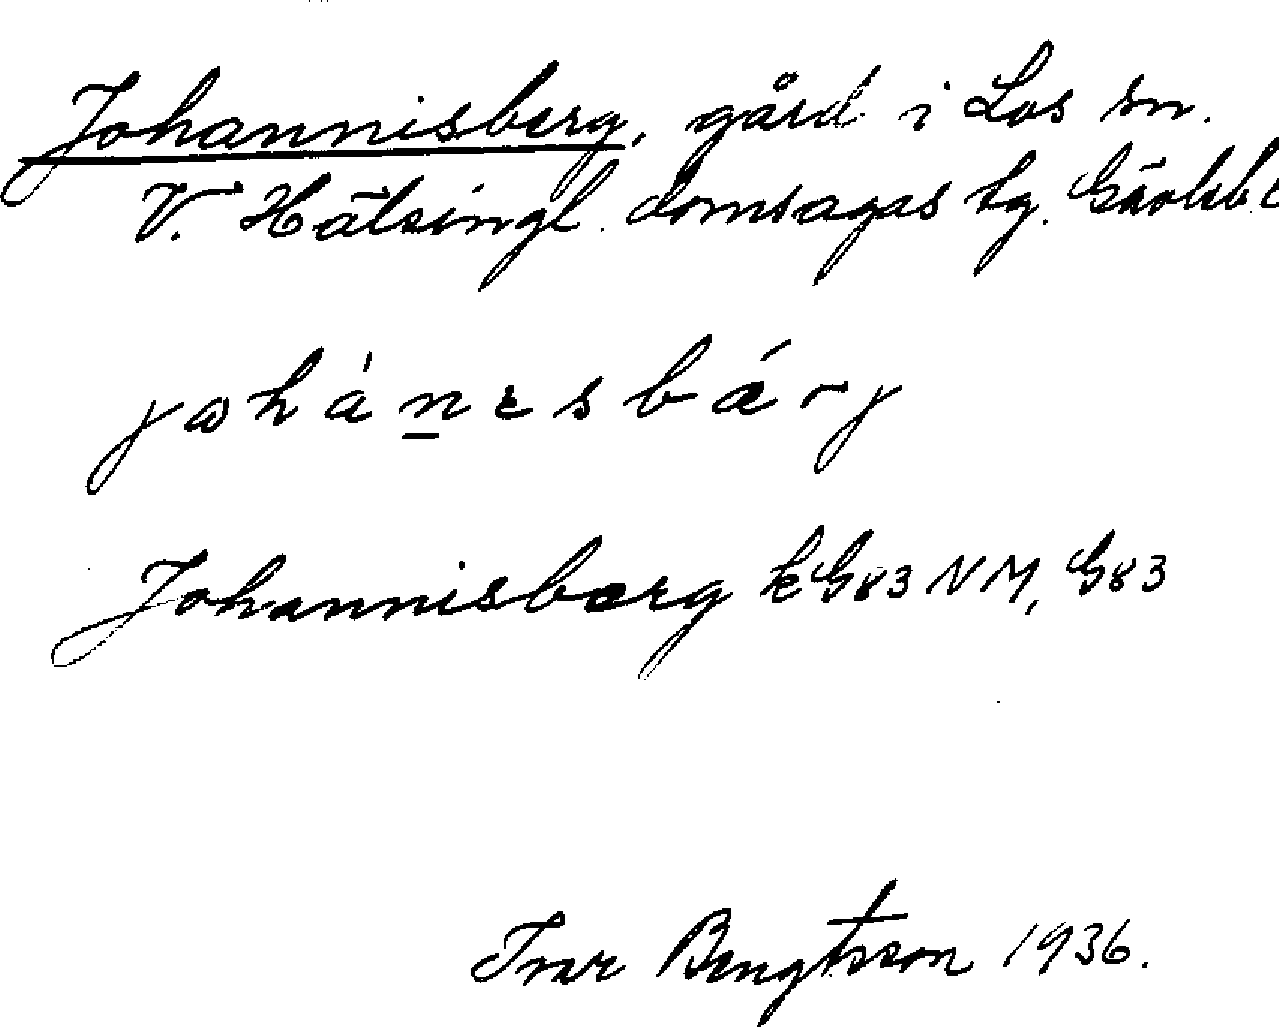 Johannisberg, gård i Los sn.
V. Hälsingl. domsagas tg. Gävleb.
johánesbárj
Johannisberg kG83NM, G83
Ivar Bengtsson 1936.